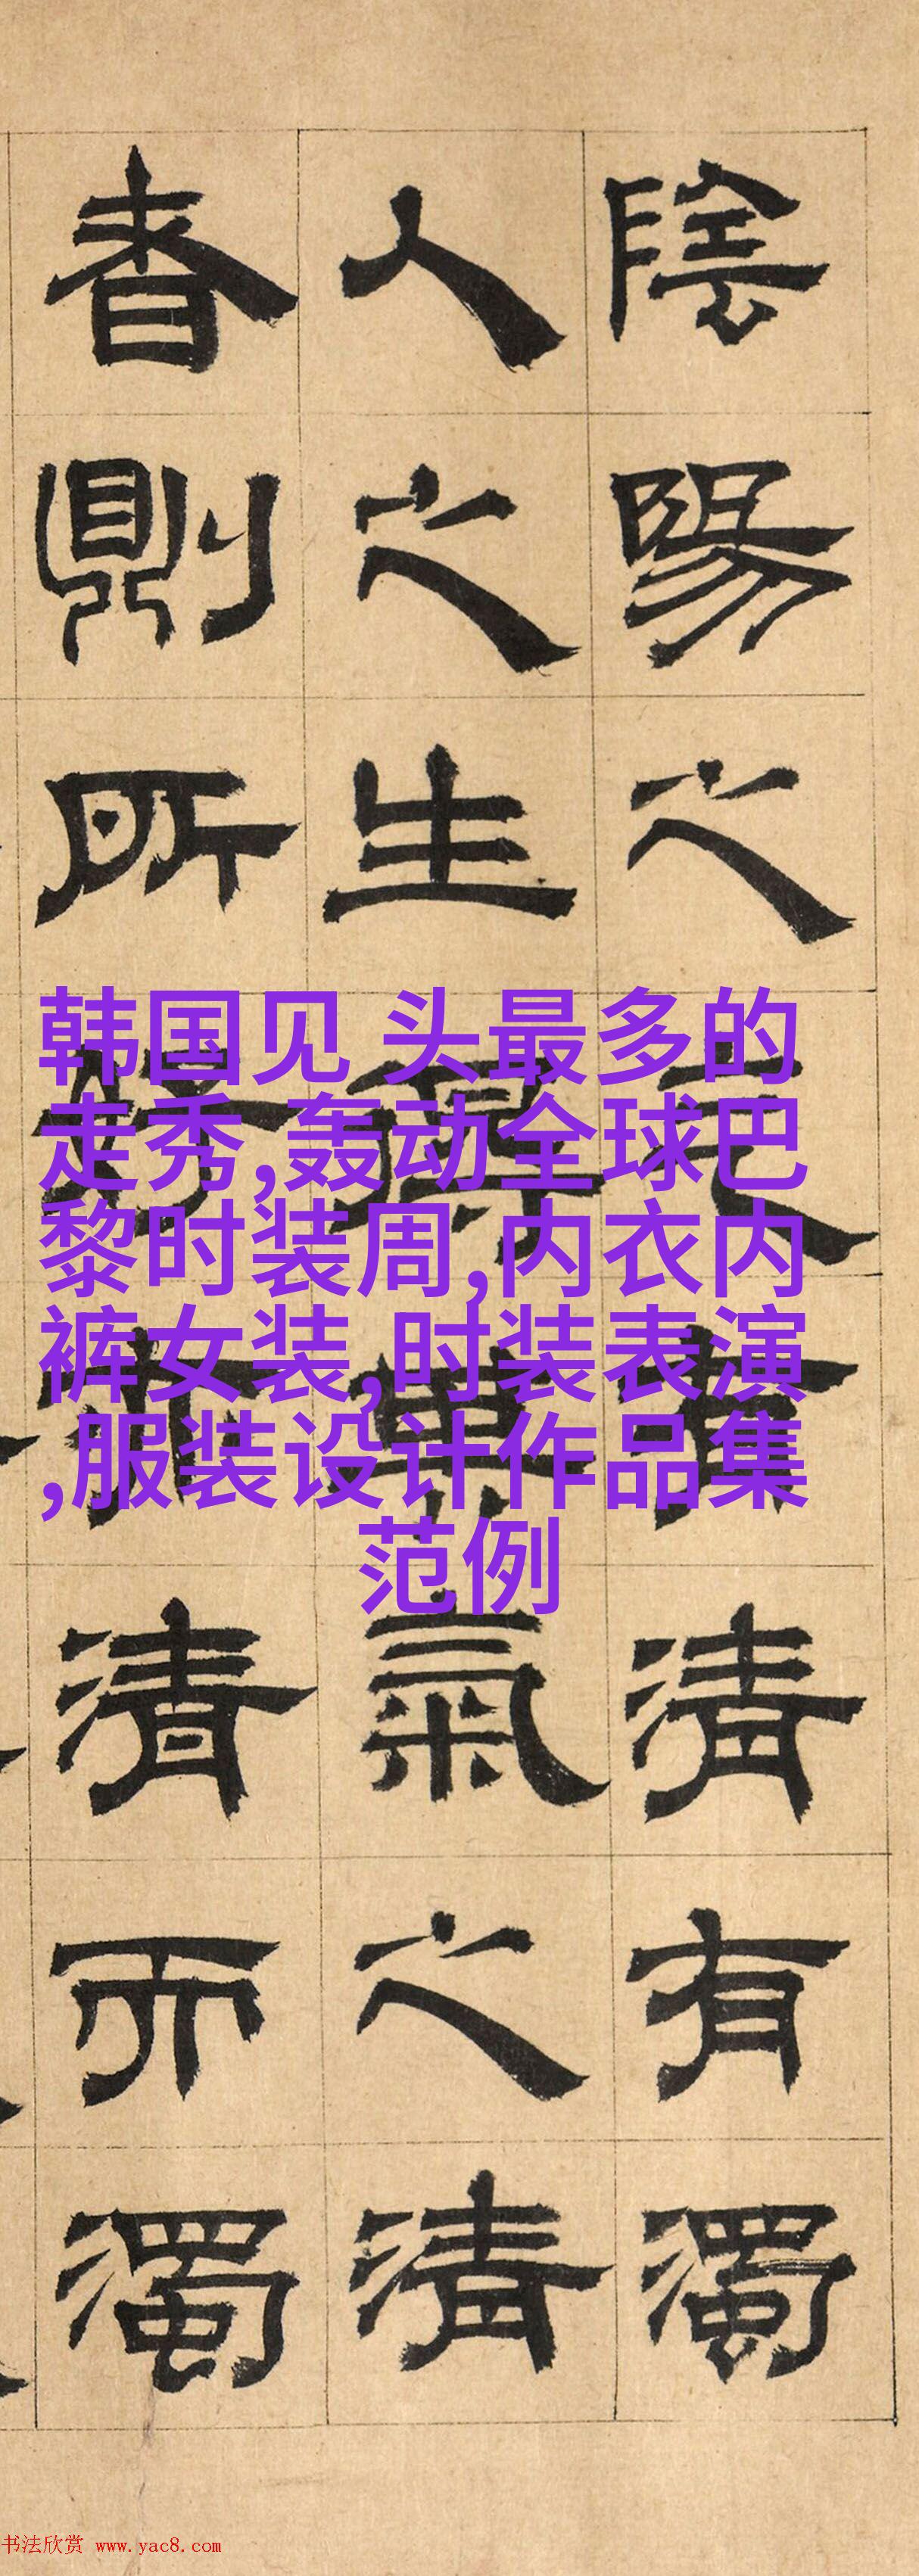 陰陽之有清有濁
人之生氣之清
者則所清而濁
韩国见 头最多的
走秀,轰动全球巴
黎时装周,内衣内
裤女装,时装表演
,服装设计作品集
范例
书法欣赏 www.yac8.com